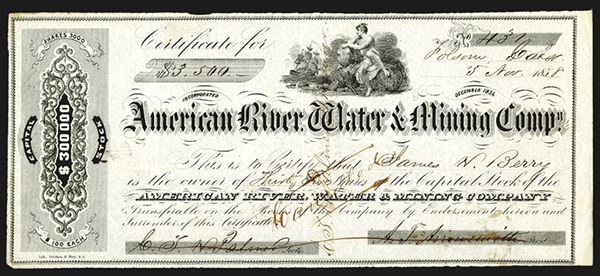 SHARES 3000
CAPITAL
STOCK
$300000
$100 EACH
Certificate for
$3.500
No 431
Folsom
5 Nov. 1858
INCORPORATED
DECEMBER 1854
American River, Water & Mining Compy
This is to Certify that James N. Berry
is the owner of Thirty five Shares of the Capital Stock of the
AMERICAN RIVER, WATER & MINING COMPANY
Transferable on the Books of the Company by Endorsement hereon and
Surrender of this Certificate.
Secty
Prest